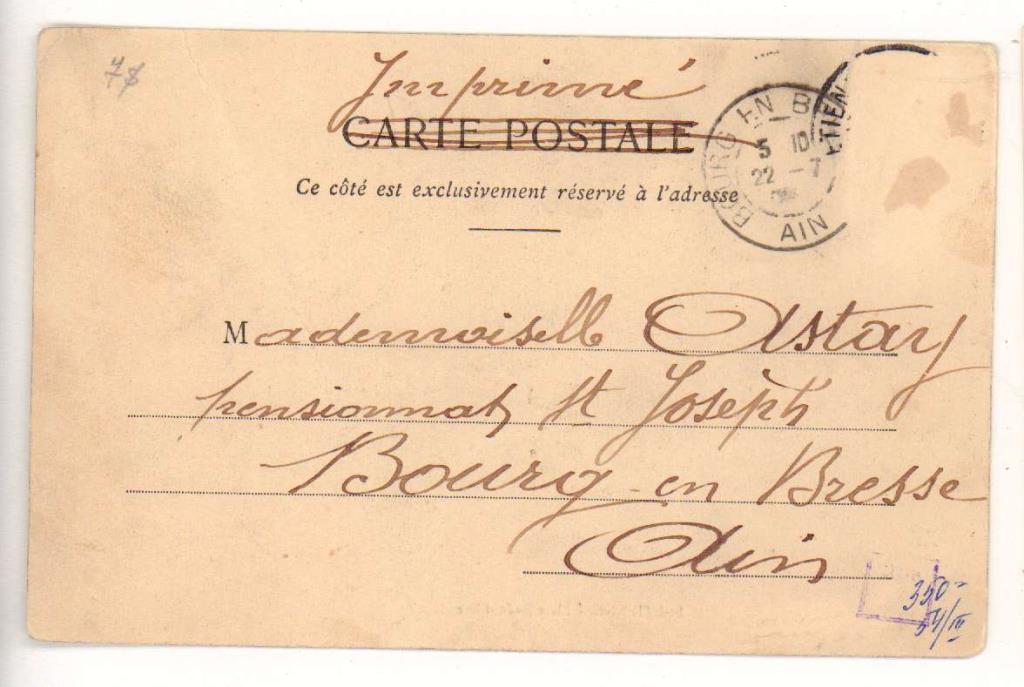 78
Imprimé
CARTE POSTALE
Ce côté est exclusivement réservé à l'adresse
BOURG EN B
5 10
22 -7
AIN
TIEN
Mademoiselle Astay
pensionnat St Joseph
Bourg-en Bresse
Ain
350-
54/IV